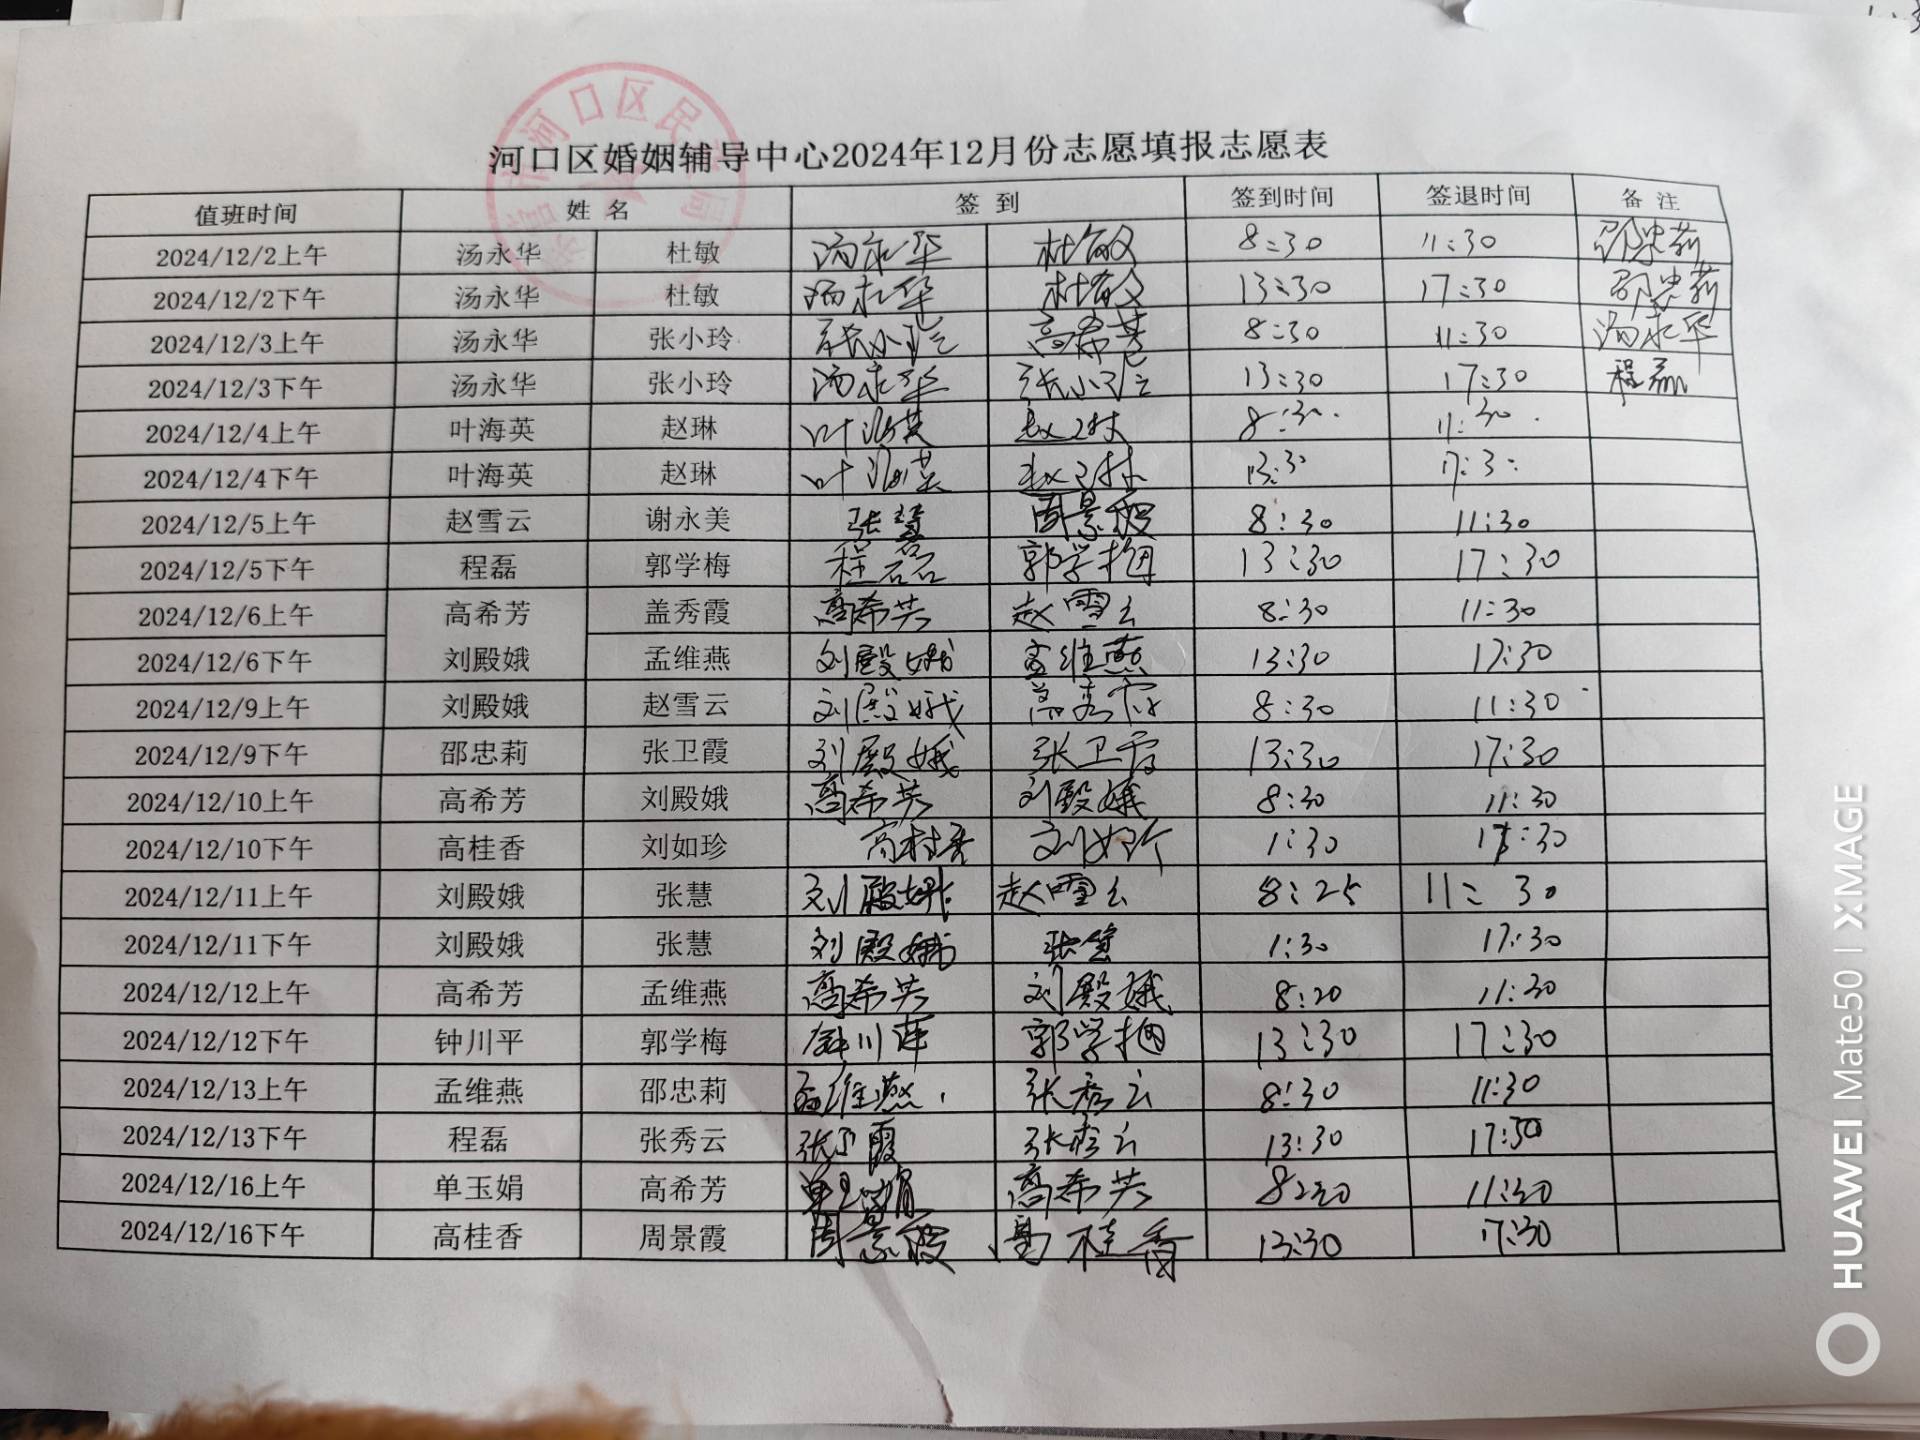 河口区民
河口区婚姻辅导中心2024年12月份志愿填报志愿表
值班时间 姓 名 签 到 签到时间 签退时间 备 注
2024/12/2上午 汤永华 杜敏 汤永华 杜敏 8:30 11:30 邵忠莉
2024/12/2下午 汤永华 杜敏 汤永华 杜敏 13:30 17:30 邵忠莉
2024/12/3上午 汤永华 张小玲 张小玲 高希芳 8:30 11:30 汤永华
2024/12/3下午 汤永华 张小玲 汤永华 张小玲 13:30 17:30 程磊
2024/12/4上午 叶海英 赵琳 叶海英 赵琳 8:30 11:30
2024/12/4下午 叶海英 赵琳 叶海英 赵琳 13:30 17:30
2024/12/5上午 赵雪云 谢永美 张慧 周景霞 8:30 11:30
2024/12/5下午 程磊 郭学梅 程磊 郭学梅 13:30 17:30
2024/12/6上午 高希芳 盖秀霞 高希芳 赵雪云 8:30 11:30
2024/12/6下午 刘殿娥 孟维燕 刘殿娥 孟维燕 13:30 17:30
2024/12/9上午 刘殿娥 赵雪云 刘殿娥 8:30 11:30
2024/12/9下午 邵忠莉 张卫霞 刘殿娥 张卫霞 13:30 17:30
2024/12/10上午 高希芳 刘殿娥 高希芳 刘殿娥 8:30 11:30
2024/12/10下午 高桂香 刘如珍 高桂香 刘如珍 1:30 17:30
2024/12/11上午 刘殿娥 张慧 刘殿娥 赵雪云 8:25 11:30
2024/12/11下午 刘殿娥 张慧 刘殿娥 张慧 1:30 17:30
2024/12/12上午 高希芳 孟维燕 高希芳 刘殿娥 8:20 11:30
2024/12/12下午 钟川平 郭学梅 钟川萍 郭学梅 13:30 17:30
2024/12/13上午 孟维燕 邵忠莉 孟维燕 张秀云 8:30 11:30
2024/12/13下午 程磊 张秀云 张卫霞 张秀云 13:30 17:30
2024/12/16上午 单玉娟 高希芳 单玉娟 高希芳 8:30 11:30
2024/12/16下午 高桂香 周景霞 周景霞 高桂香 13:30 17:30
HUAWEI Mate50 | XMAGE